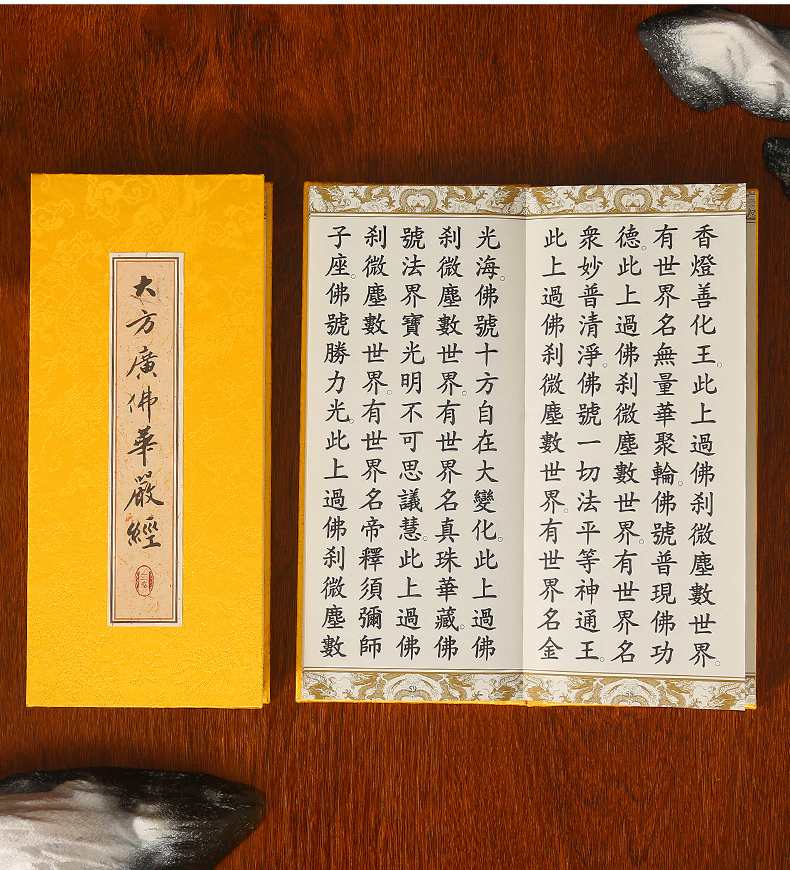 大方廣佛華嚴經
香燈善化王。此上過佛刹微塵數世界。
有世界名無量華聚輪。佛號普現佛功
德。此上過佛刹微塵數世界。有世界名
衆妙普清淨。佛號一切法平等神通王。
此上過佛刹微塵數世界。有世界名金
光海。佛號十方自在大變化。此上過佛
刹微塵數世界。有世界名真珠華藏。佛
號法界寶光明不可思議慧。此上過佛
刹微塵數世界。有世界名帝釋須彌師
子座。佛號勝力光。此上過佛刹微塵數